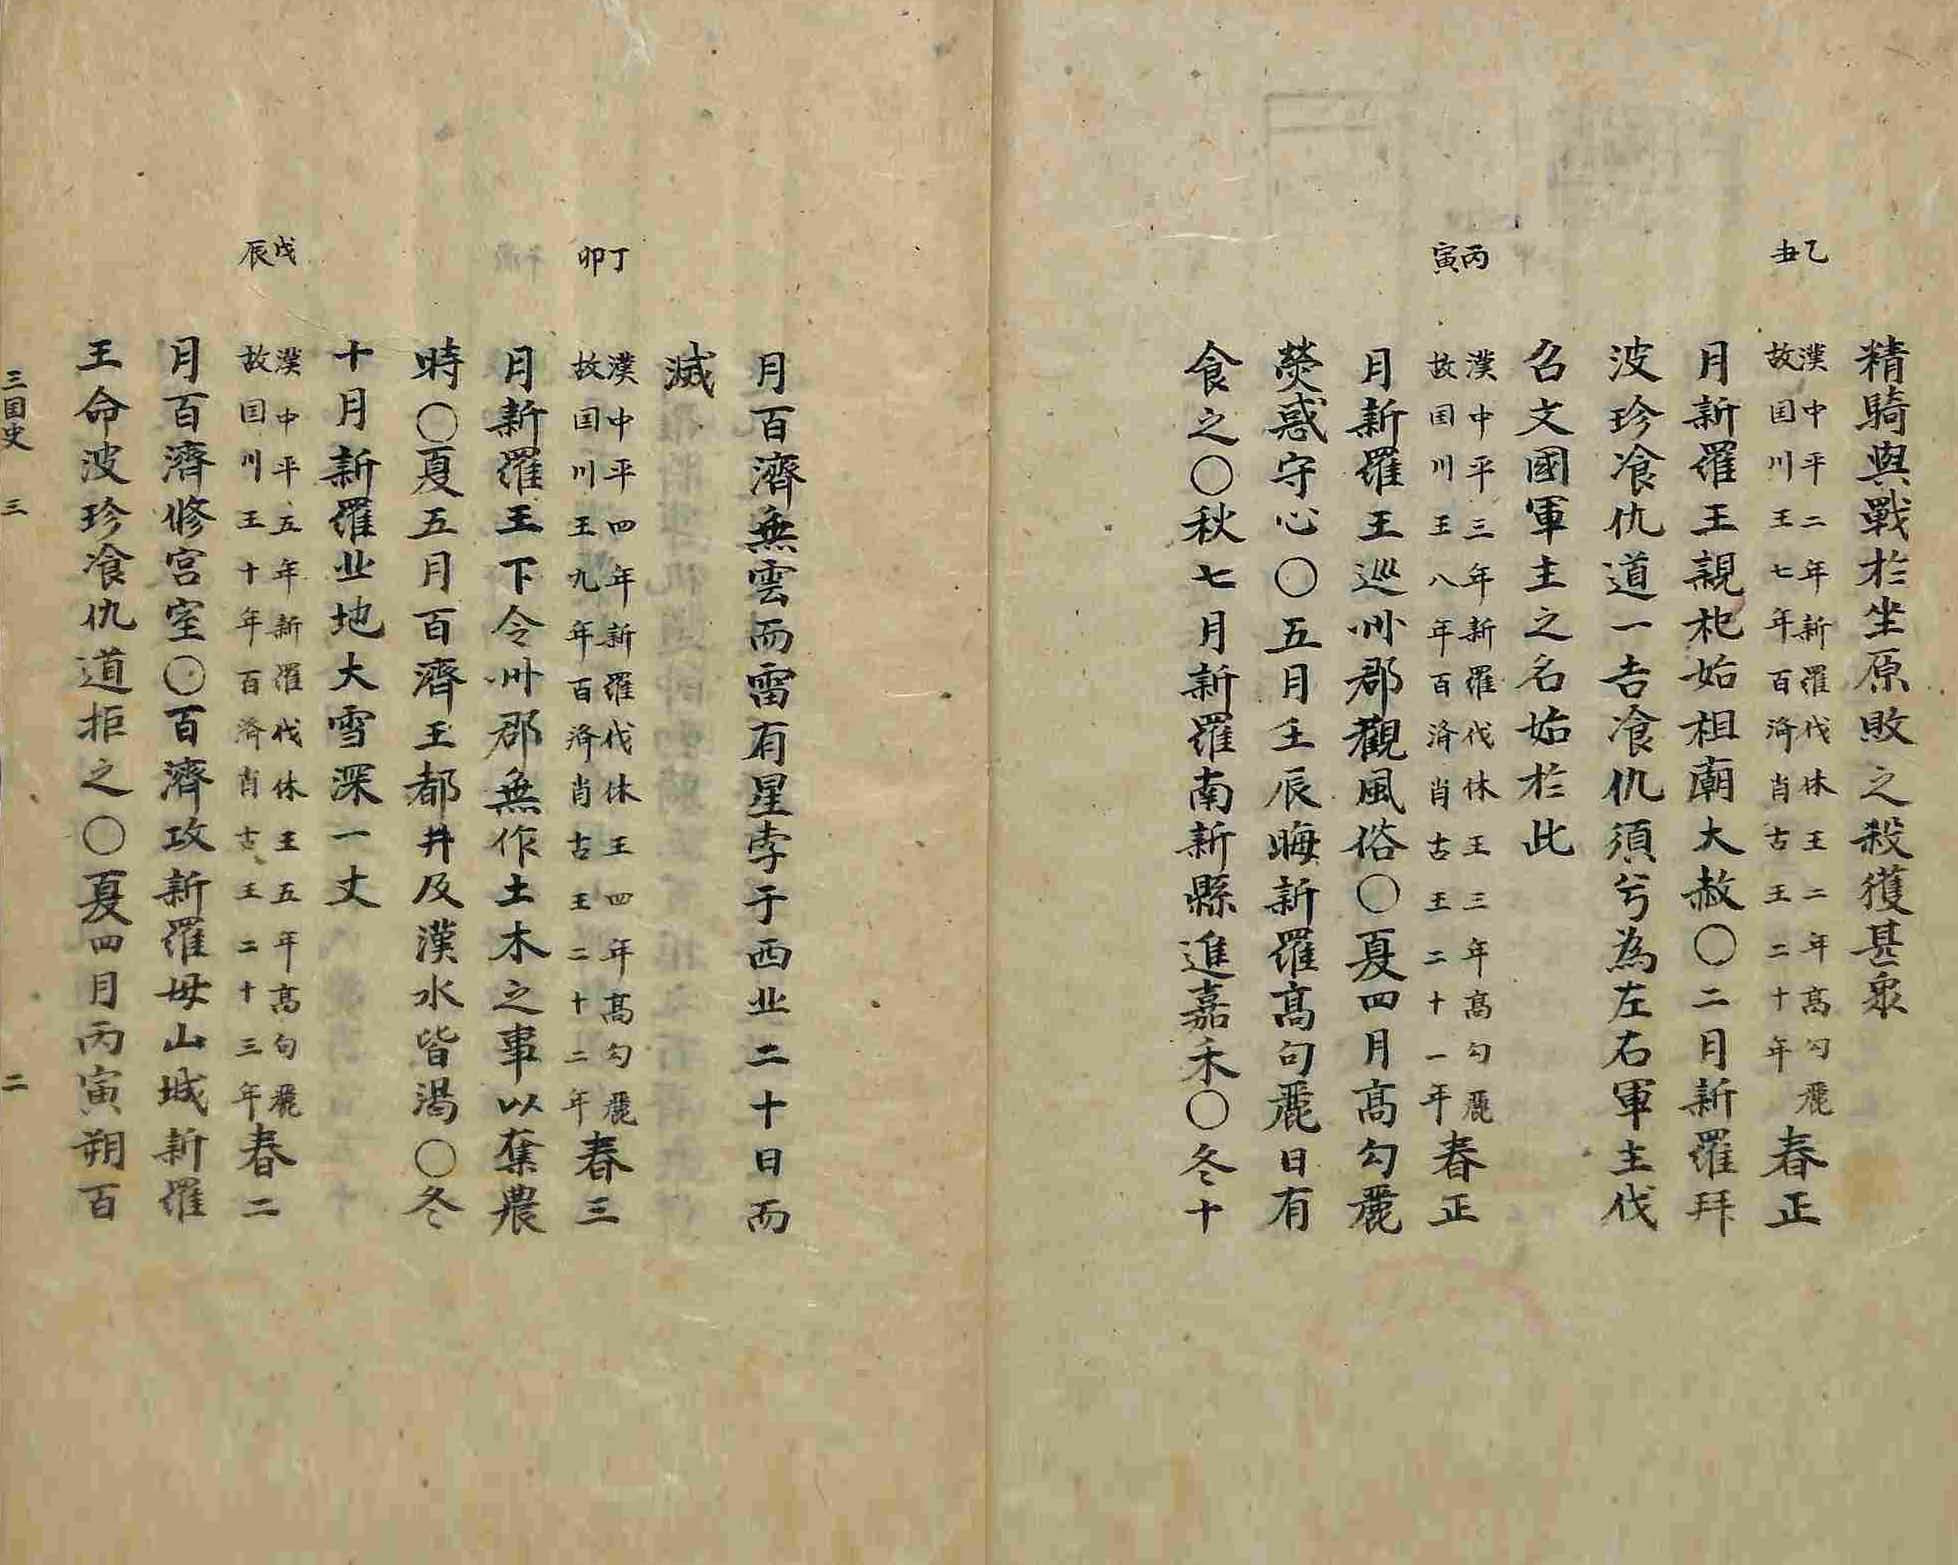 精騎與戰於坐原敗之殺獲甚衆
乙丑
漢中平二年新羅伐休王二年高勾麗
故国川王七年百済肖古王二十年
春正
月新羅王親祀始祖廟大赦〇二月新羅拜
波珍飡仇道一吉飡仇須兮為左右軍主伐
召文國軍主之名始於此
丙寅
漢中平三年新羅伐休王三年高勾麗
故国川王八年百済肖古王二十一年
春正
月新羅王巡州郡觀風俗〇夏四月高勾麗
熒惑守心〇五月壬辰晦新羅高句麗日有
食之〇秋七月新羅南新縣進嘉禾〇冬十
月百濟無雲而雷有星孛于西北二十日而
滅
丁卯
漢中平四年新羅伐休王四年高勾麗
故国川王九年百済肖古王二十二年
春三
月新羅王下令州郡無作土木之事以奪農
時〇夏五月百濟王都井及漢水皆渴〇冬
十月新羅北地大雪深一丈
戊辰
漢中平五年新羅伐休王五年高句麗
故国川王十年百済肖古王二十三年
春二
月百濟修宮室〇百濟攻新羅母山城新羅
王命波珍飡仇道拒之〇夏四月丙寅朔百
三国史 三 二